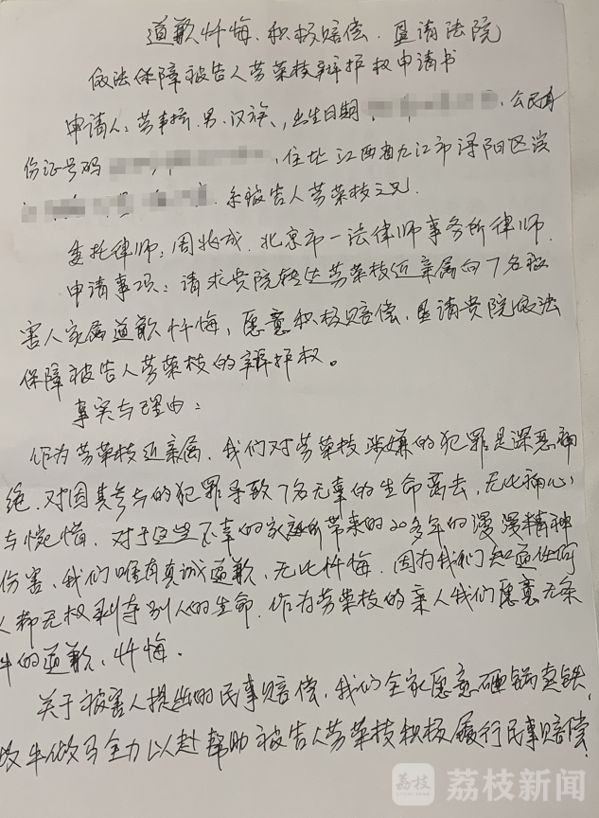 道歉忏悔、积极赔偿、恳请法院
依法保障被告人劳荣枝辩护权申请书
申请人：劳声桥，男，汉族，出生日期 公民身
份证号码 ，住址 江西省九江市浔阳区滨
，系被告人劳荣枝之兄。
委托律师：周兆成，北京市一法律师事务所律师。
申请事项：请求贵院转达劳荣枝近亲属向7名被
害人家属道歉忏悔，愿意积极赔偿，恳请贵院依法
保障被告人劳荣枝的辩护权。
事实与理由：
作为劳荣枝近亲属，我们对劳荣枝涉嫌的犯罪是深恶痛
绝，对因其参与的犯罪导致7名无辜的生命离去，无比痛心
与惋惜，对于这些不幸的家庭所带来的20多年的漫漫精神
伤害，我们唯有真诚道歉、无比忏悔。因为我们知道任何
人都无权剥夺别人的生命，作为劳荣枝的亲人我们愿意无条
件的道歉、忏悔。
关于被害人提出的民事赔偿，我们全家愿意砸锅卖铁，
做牛做马全力以赴帮助被告人劳荣枝积极履行民事赔偿
荔枝 荔枝新闻